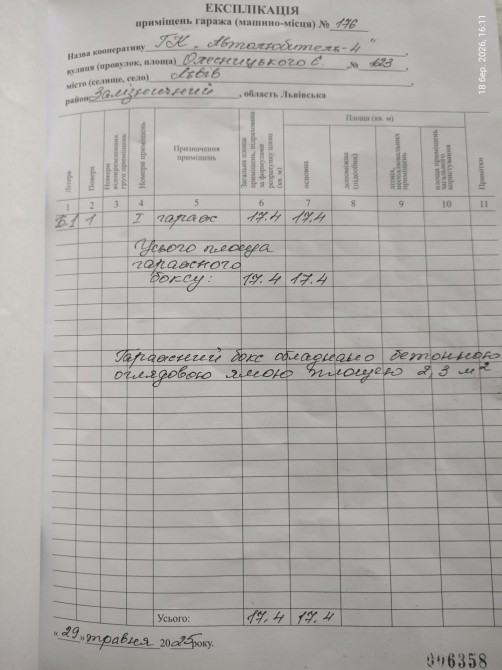 ЕКСПЛІКАЦІЯ
приміщень гаража (машино-місця) № 176
Назва кооперативу ГК „Автолюбитель-4"
вулиця (провулок, площа) Олесницького Є. № 123
місто (селище, село) Львів
район Залізничний, область Львівська
18 бер. 2026, 16:11
Літера
Поверх
Номери відокремлених груп приміщень
Номери приміщень
Призначення приміщень
Загальна площа приміщень, підрахована за формулами розрахунку площ (кв. м)
Площа (кв. м)
основна
допоміжна (підсобна)
площа приміщень загального користування
Примітки
1 2 3 4 5 6 7 8 9 10 11
Б-1 1 I гараж 17.4 17.4
Усього площа
гаражного
боксу: 17.4 17.4
Гаражний бокс обладнано бетонною
оглядовою ямою площею 2,3 м²
Усього: 17.4 17.4
„29" травня 2025 року.
996358